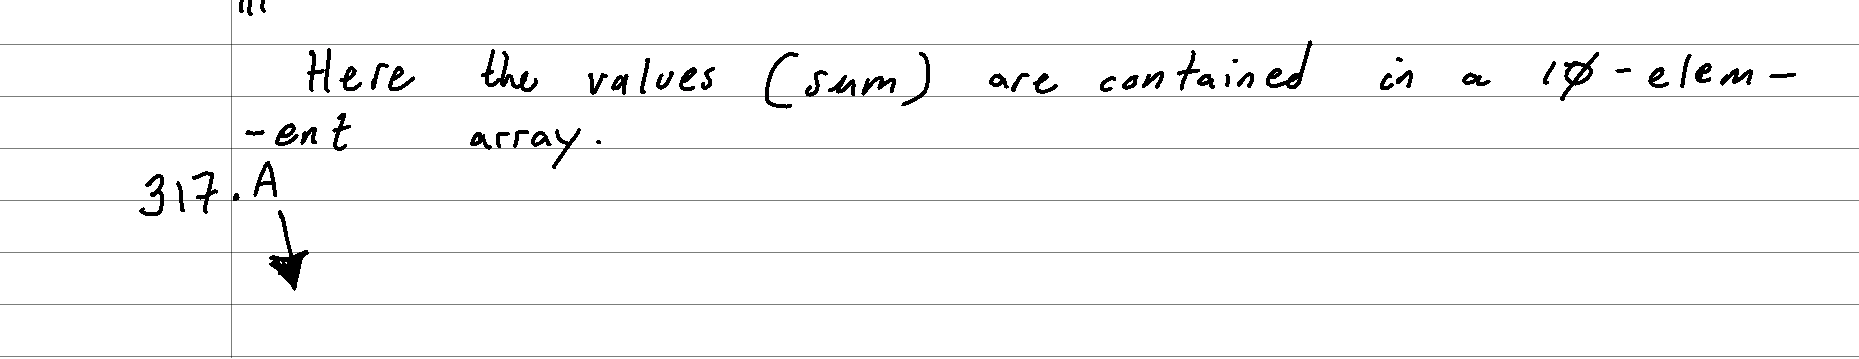 Here the values (sum) are contained in a 10-elem-
-ent array.
317. A